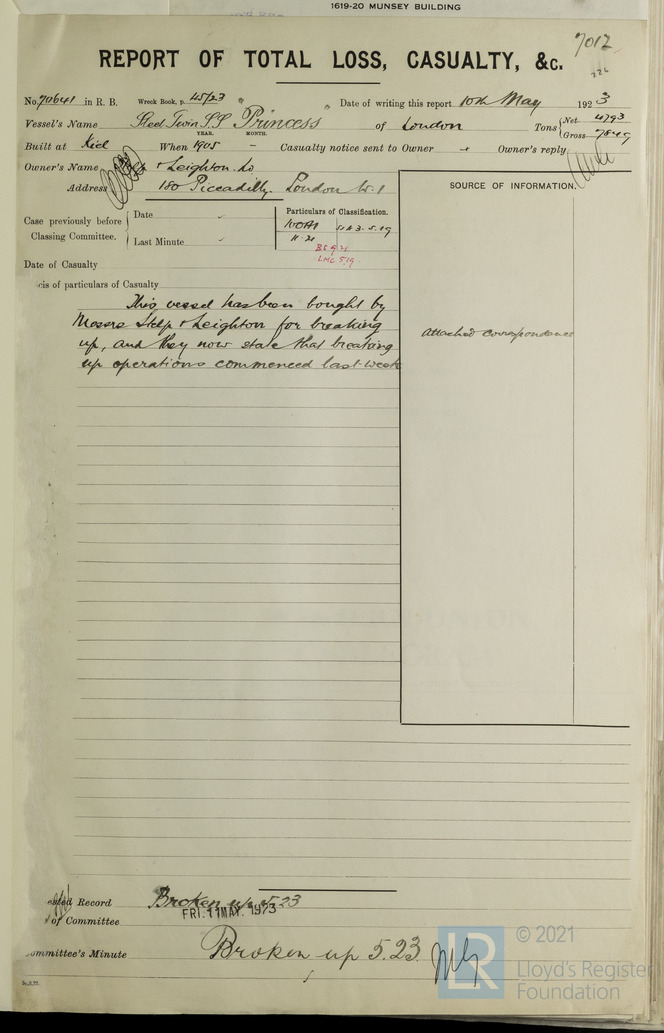 1619-20 MUNSEY BUILDING
7012
226
REPORT OF TOTAL LOSS, CASUALTY, &c.
No. 70641 in R. B. Wreck Book, p. 45/23 Date of writing this report 10th May 1923
Vessel's Name Steel Twin S.S "Princess" of London Tons Net 4793
YEAR. MONTH. Gross 7849
Built at Kiel When 1905 - Casualty notice sent to Owner + Owner's reply
Owner's Name & Leighton Ld
Address 180 Piccadilly. London W.1
SOURCE OF INFORMATION.
Case previously before Classing Committee. Date
Last Minute
Particulars of Classification.
11.21
BS 9 21
LMC 5,19
Date of Casualty
cis of particulars of Casualty
This vessel has been bought by
Messrs Stelp & Leighton for breaking
up, and they now state that breaking
up operations commenced last week
Attached Correspondence
Record Broken up 5.23
FRI. 11 MAY. 1923
of Committee
ommittee's Minute Broken up 5.23.
LR
© 2021
Lloyd's Register
Foundation